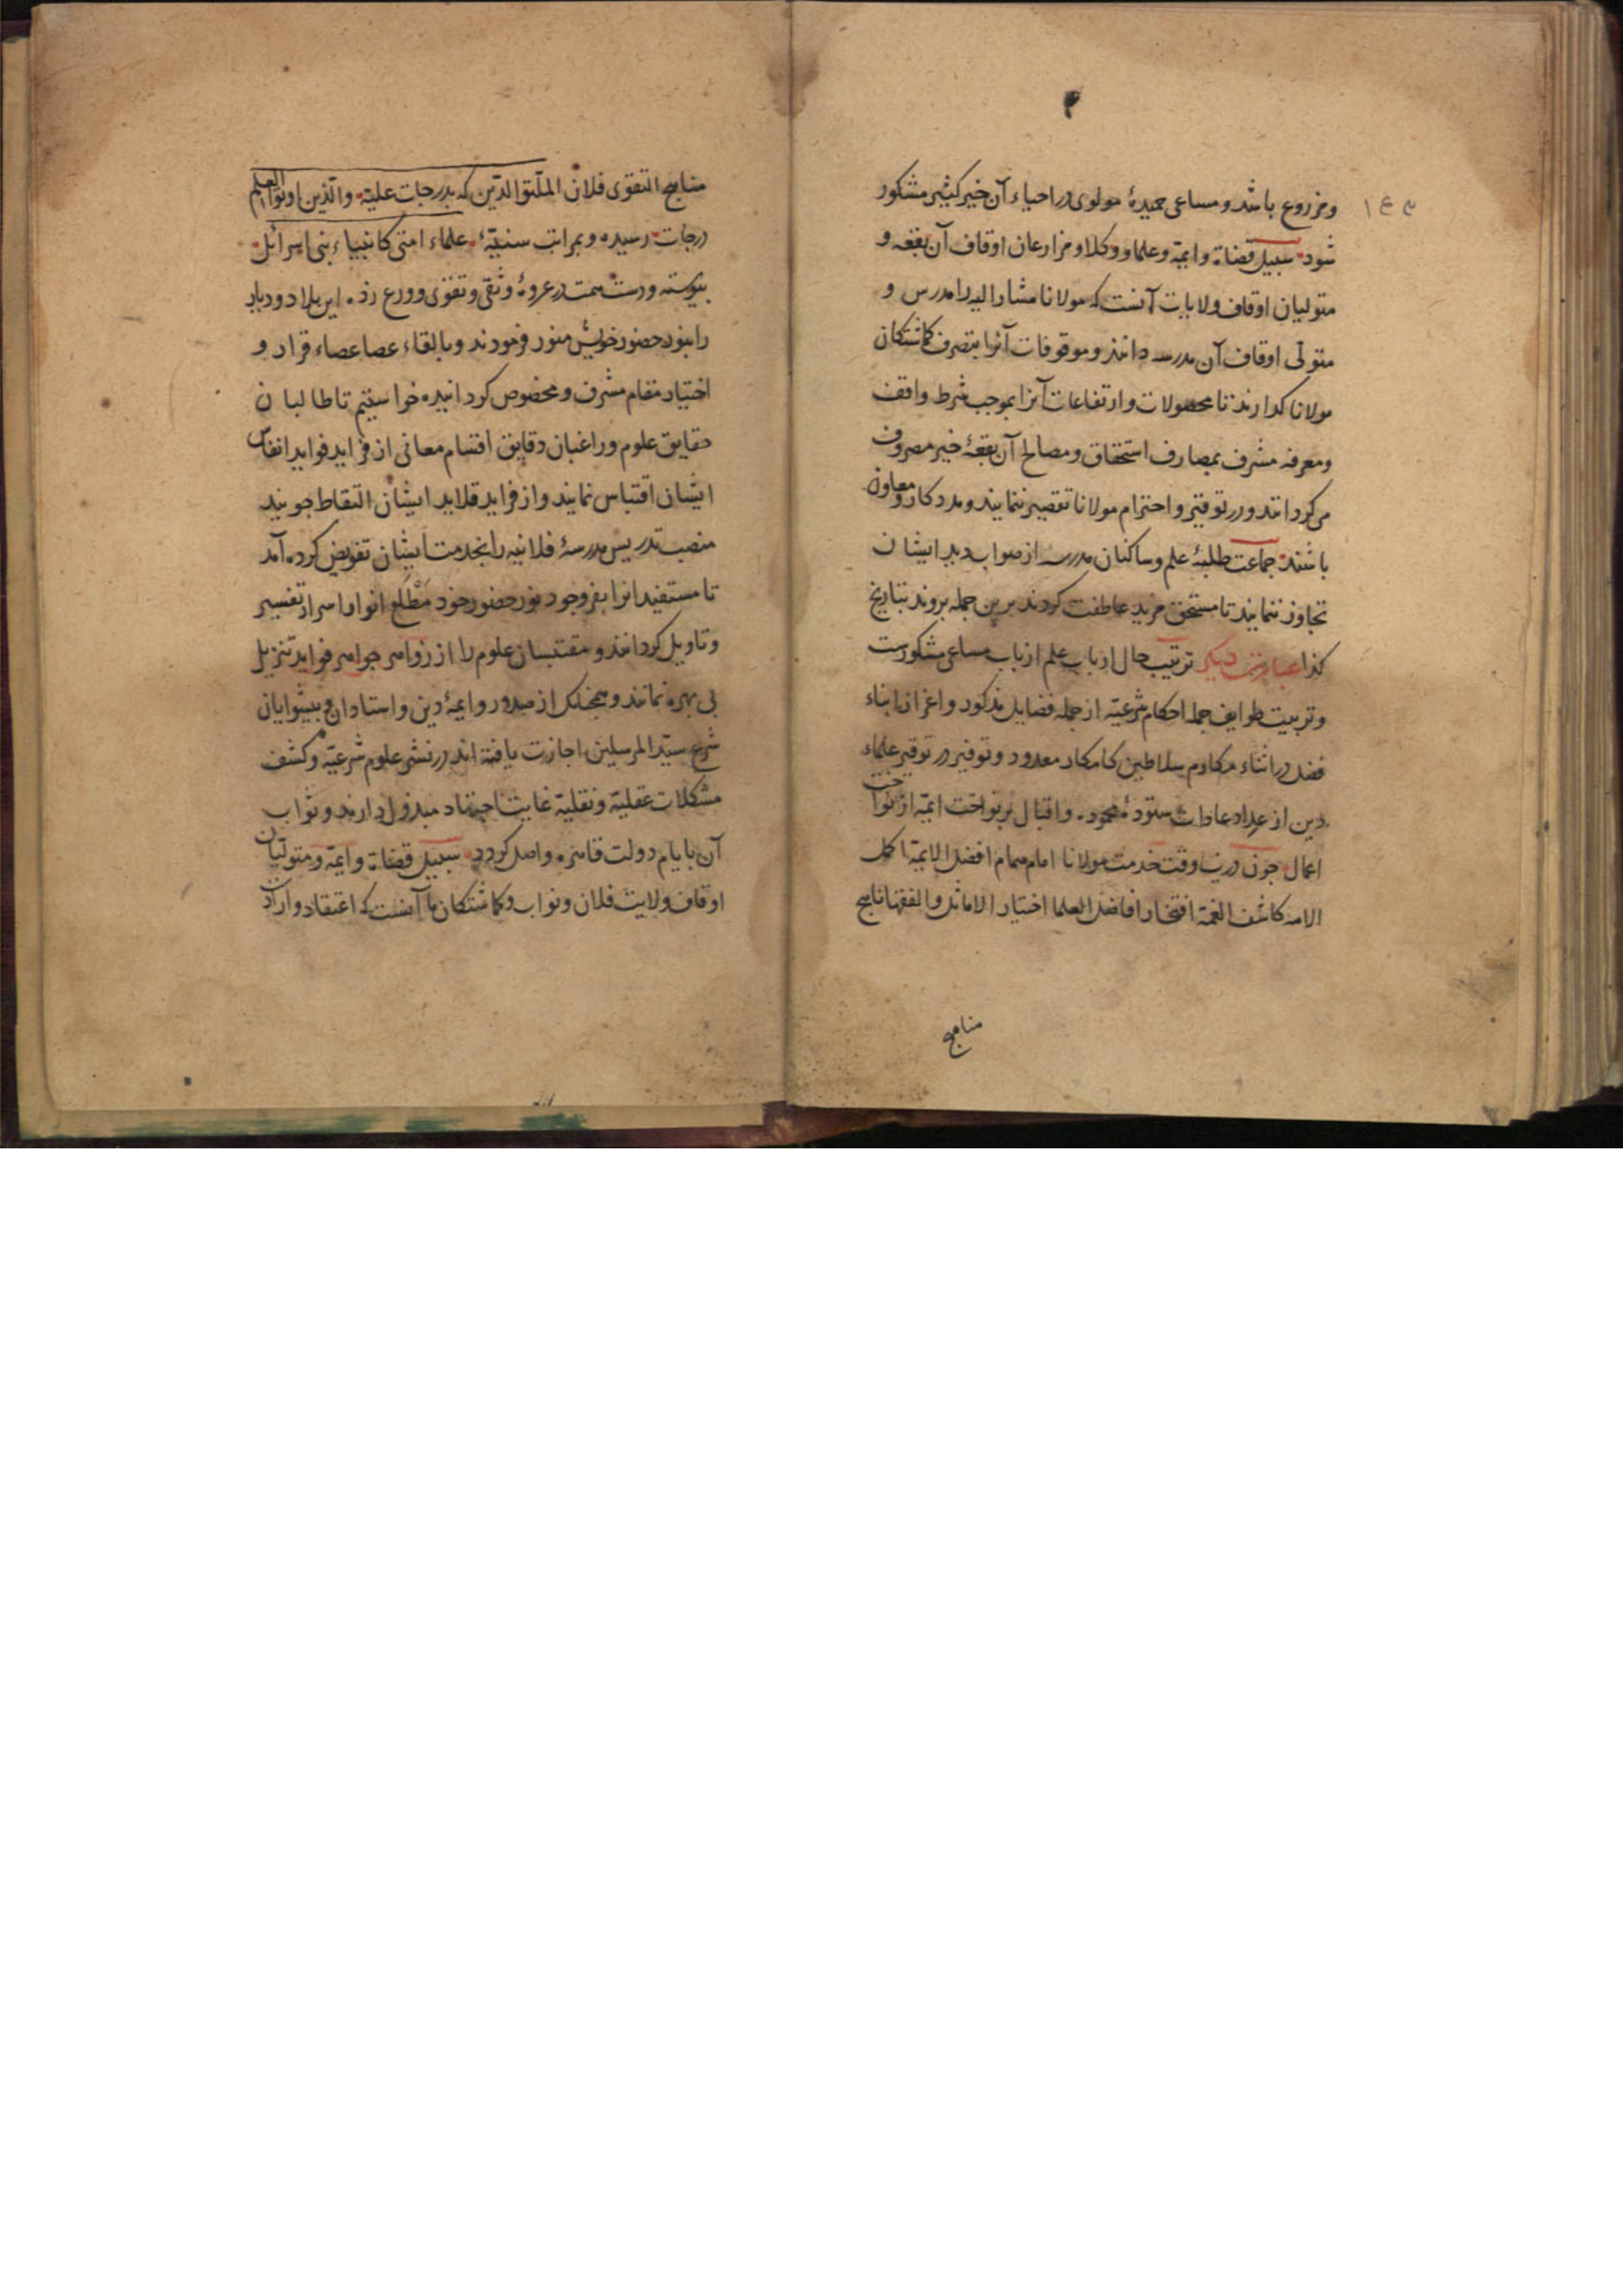 ۱۴۳
ومزروع باشد و مساعی حمیدهٔ مولوی در احیاء آن خیر کثیر مشکور
شود سبیل قضاة وایمه وعلما و وکلا ومزارعان اوقاف آن بقعه و
متولیان اوقاف ولایات آنست که مولانا مشار الیه را مدرس و
متولی اوقاف آن مدرسه دانند وموقوفات آنرا بتصرف کماشتکان
مولانا کذارند تا محصولات وارتفاعات آنرا بموجب شرط واقف
ومعرفه مشرف بمصارف استحقاق ومصالح آن بقعهٔ خیر مصروف
می کردانند ودر توقیر واحترام مولانا تقصیر ننمایند ومددکار و معاون
باشند جماعت طلبهٔ علم وساکنان مدرسه از صواب دید ایشان
تجاوز ننمایند تا مستحق مزید عاطفت کردند برین جمله بروند بتاریخ
کذا عبارتی دیکر ترتیب حال ارباب علم از باب مساعی مشکورست
وتربیت طوایف حمله احکام شرعیه از جمله فضایل مذکور واعزاز ابناء
فضل در اثناء مکارم سلاطین کامکار معدود وتوفیر در توقیر علماء
دین از عداد عادات ستودهٔ محمود واقبال بر نواخت ایمه از نواخت
اعمال جون درین وقت خدمت مولانا امام همام افضل الایمه اکمل
الامه کاشف الغمة افتخار افاضل العلما اختیار الاماثل والفقها ناهج
مناهج
مناهج التقوی فلان الملة والدین که بدرجات علیه والذین اوتوا العلم
درجات رسیده وبمراتب سنیه علماء امتی کانبیاء بنی اسرائل
پیوسته ودست همت در عروهٔ وثقی وتقوی وورع زده این بلاد و دیار
را بنور حضور خویش منور فرمودند وبالقاء عصا عصاء قرار و
اختیار مقام مشرف ومخصوص کردانیده خواستیم تا طالبان
حقایق علوم وراغبان دقایق اقسام معانی از فراید فواید انفاس
ایشان اقتباس نمایند واز فراید قلاید ایشان التقاط جویند
منصب تدریس مدرسهٔ فلانیه را بخدمت ایشان تفویض کرده آمد
تا مستفیدانرا بفر وجود نور حضور خود مطلع انوار اسرار تفسیر
وتاویل کردانند و مقتبسان علوم را از زواهر جواهر فواید تنزیل
بی بهره نمانند وهمجنانک از صدور وایمهٔ دین واستادان و پیشوایان
شرع سید المرسلین اجازت یافته اند در نشر علوم شرعیه وکشف
مشکلات عقلیة ونقلیة غایت اجتهاد مبذول دارند وثواب
آن بایام دولت قاهره واصل کردد سبیل قضاة وایمه ومتولیان
اوقاف ولایت فلان ونواب وکماشتکان ما آنست که اعتقاد وارادت